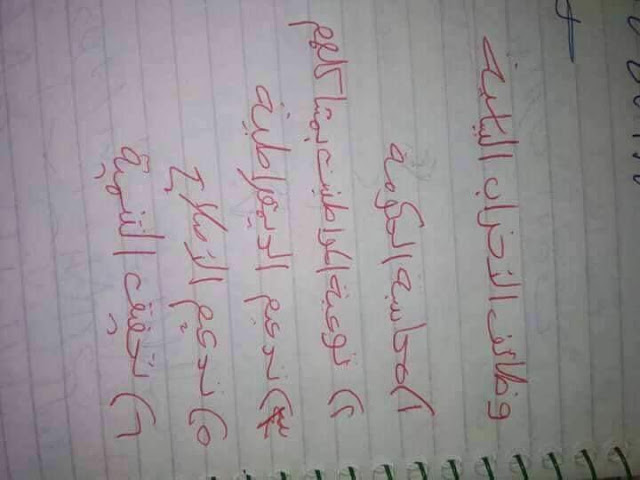 وظائف الأحزاب السياسية
١) محاسبة الحكومة
٢) توعية المواطنين بمشاكلهم
٤) تدعيم الديمقراطية
٥) تدعيم الإصلاح
٦) تحقيق التنمية